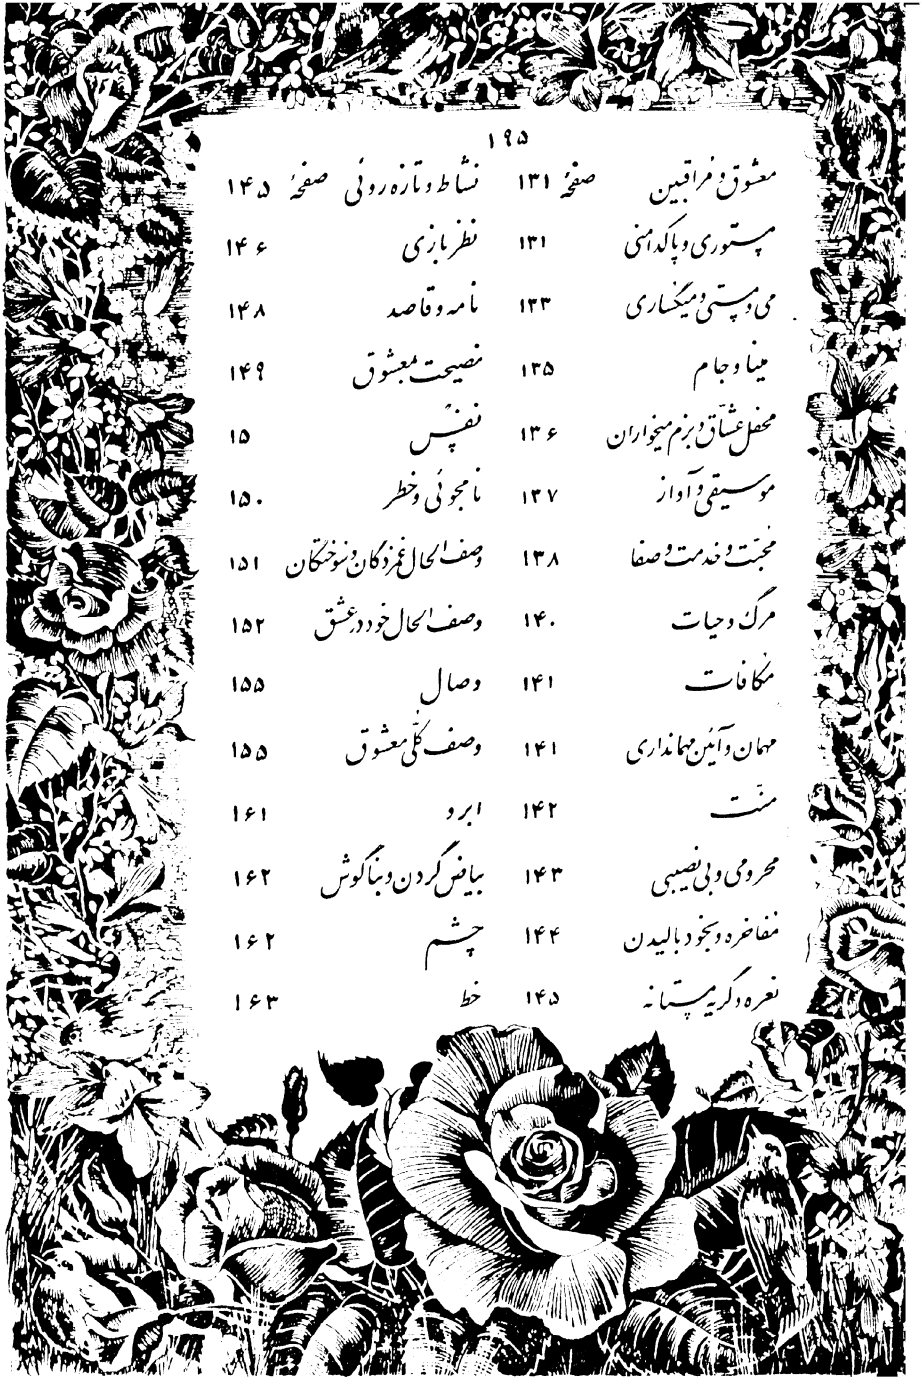 ۱۹۵
معشوق و فراقبین صفحهٔ ۱۳۱
مستوری و پاکدامنی ۱۳۱
می و مستی و میگساری ۱۳۳
مینا و جام ۱۳۵
محفل عشّاق و بزم میخواران ۱۳۶
موسیقی و آواز ۱۳۷
محبّت و خدمت و صفا ۱۳۸
مرگ و حیات ۱۴۰
مکافات ۱۴۱
مهمان و آئین مهمانداری ۱۴۱
منّت ۱۴۲
محرومی و بی نصیبی ۱۴۳
مفاخره و بخود بالیدن ۱۴۴
نعره و گریه مستانه ۱۴۵
نشاط و تازه روئی صفحهٔ ۱۴۵
نظر بازی ۱۴۶
نامه و قاصد ۱۴۸
نصیحت بمعشوق ۱۴۹
نفس ۱۵
نامجوئی و خطر ۱۵۰
وصف الحال غمزدگان و سوختگان ۱۵۱
وصف الحال خود در عشق ۱۵۲
وصال ۱۵۵
وصف کلّی معشوق ۱۵۵
ابرو ۱۶۱
بیاض گردن و بناگوش ۱۶۲
چشم ۱۶۲
خط ۱۶۳